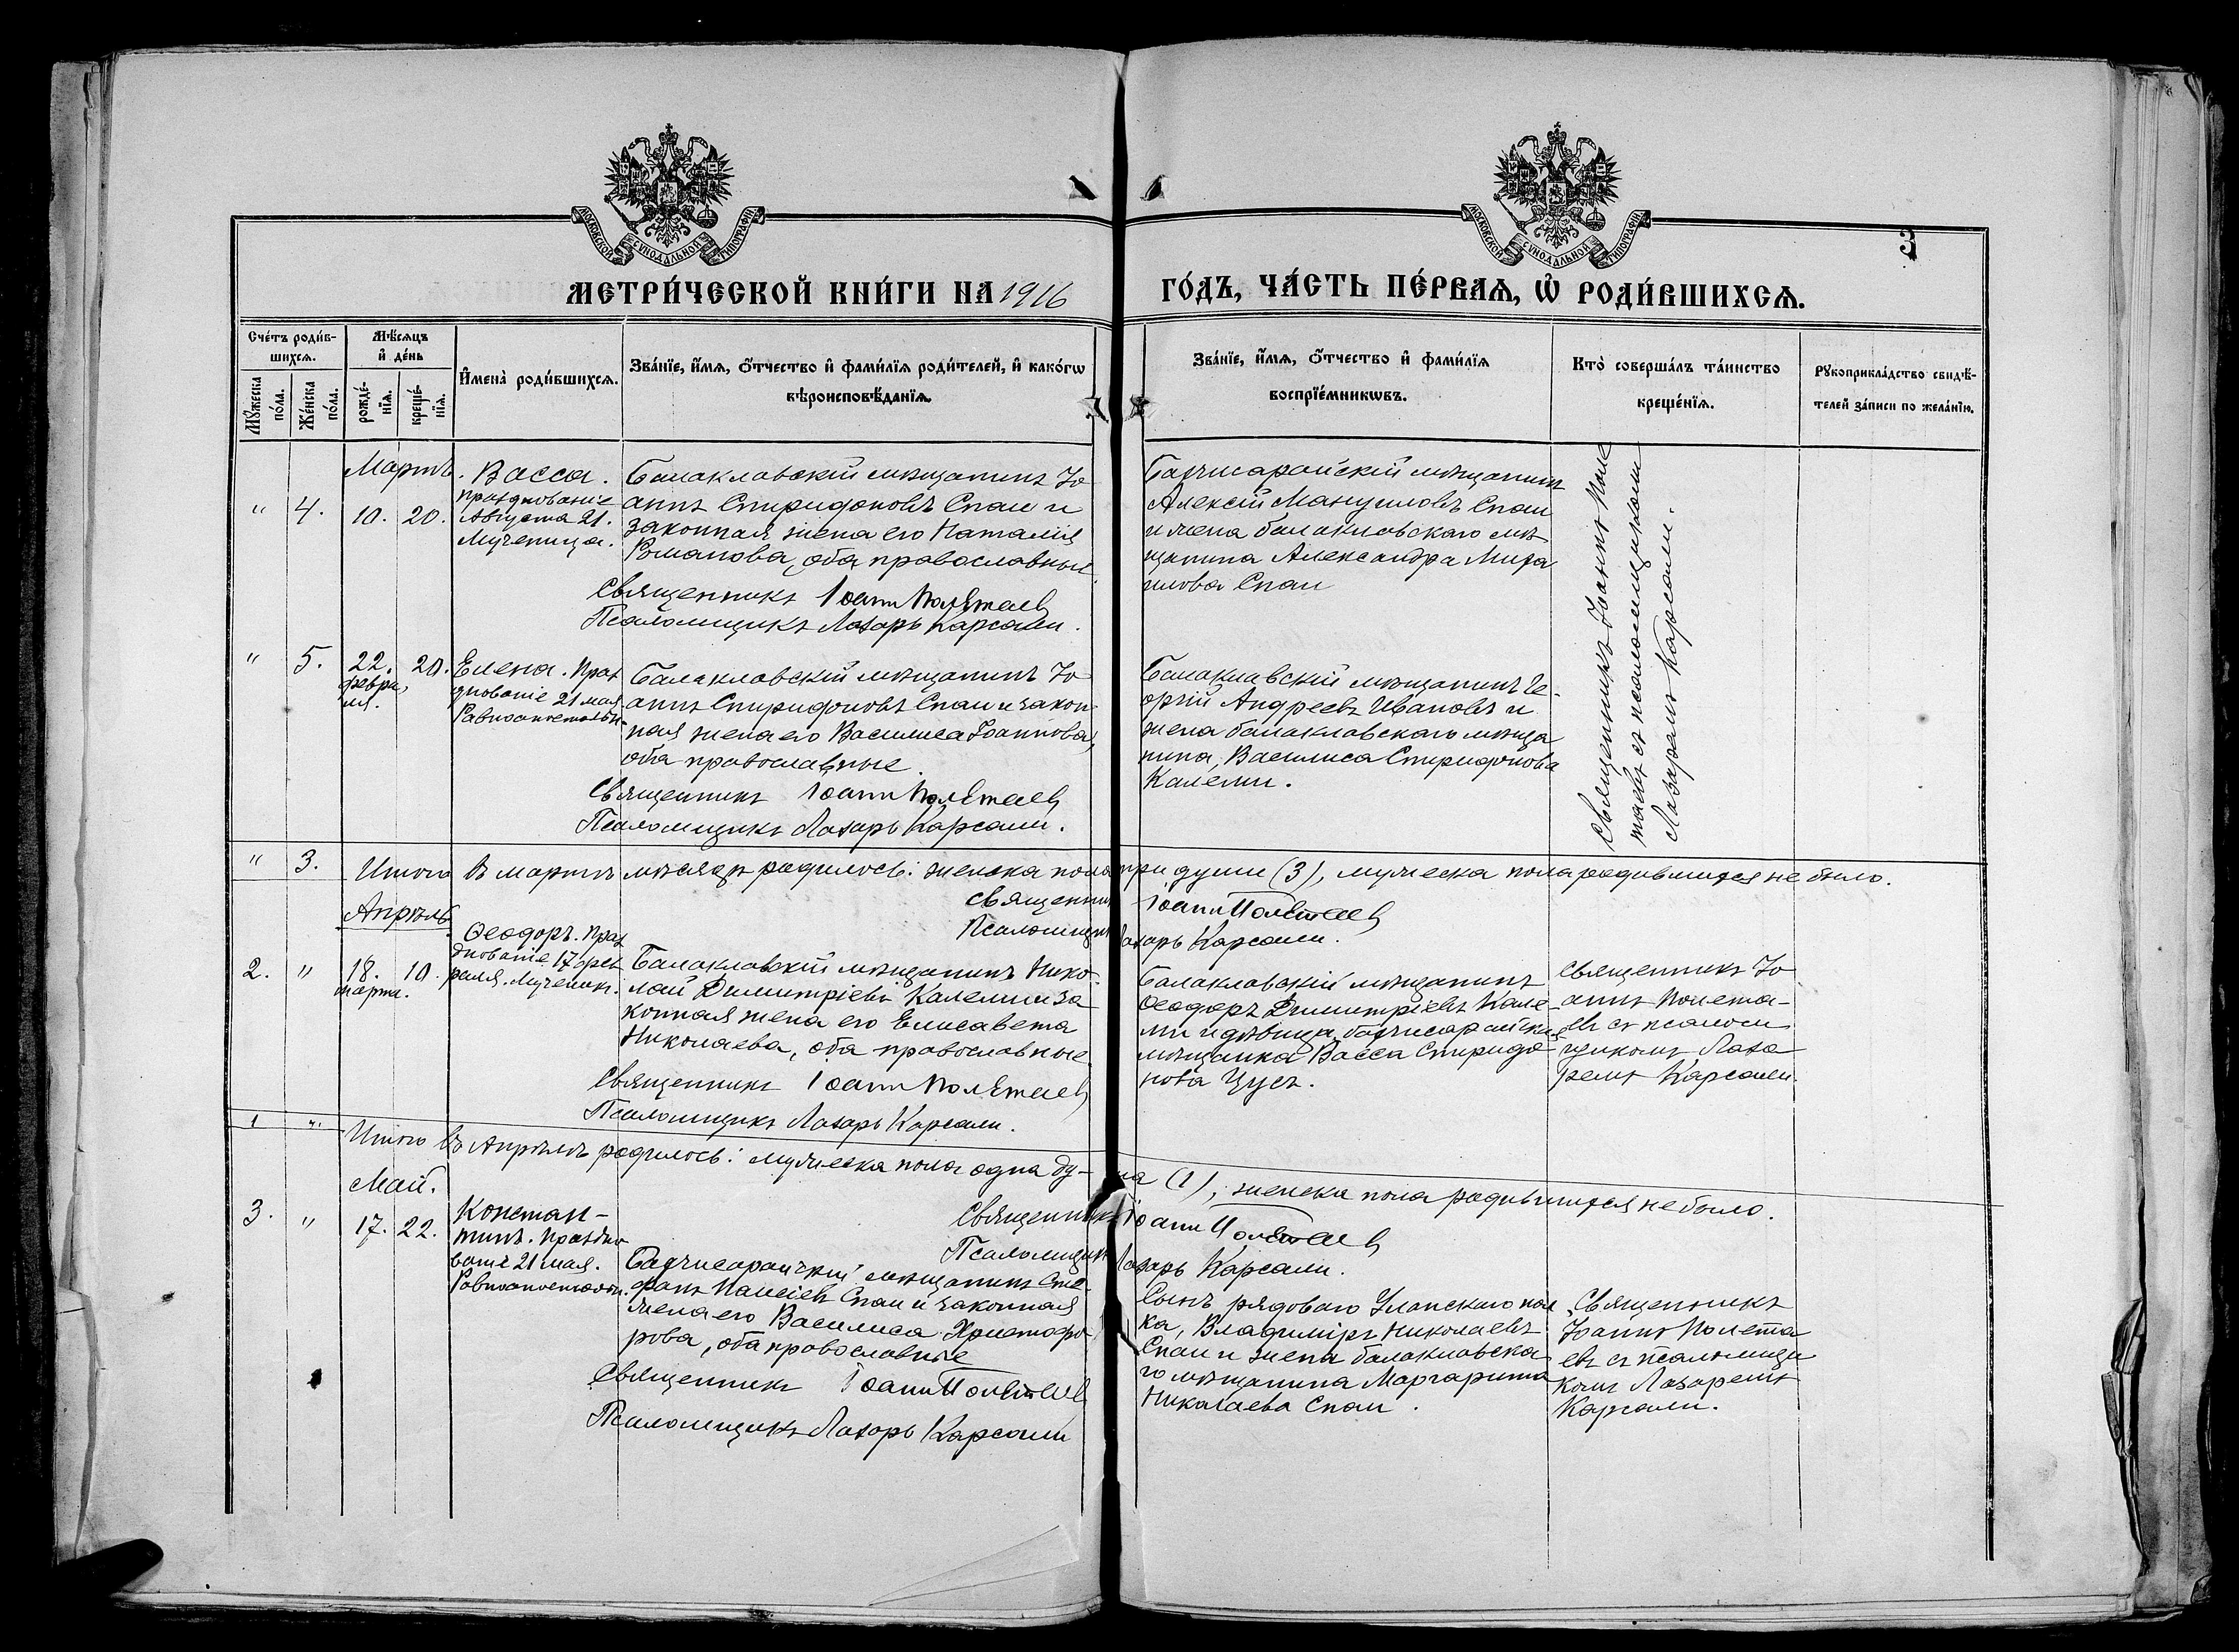 МОСКОВСКОЙ СѴНОДАЛЬНОЙ ТИПОГРАФІИ
МОСКОВСКОЙ СѴНОДАЛЬНОЙ ТИПОГРАФІИ
3
МЕТРИ́ЧЕСКОЙ КНИ́ГИ НА 1916
ГО́ДЪ, ЧА́СТЬ ПЕ́РВАѦ, Ѡ РОДИ́ВШИХСѦ.
Сче́тъ роди́в-
шихсѧ.
Мꙋ́жеска
по́ла.
Же́нска
по́ла.
Мѣ́сѧцъ
и҆ де́нь
рожде́-
нїѧ.
креще́-
нїѧ.
И҆мена̀ роди́вшихсѧ.
Зва́нїе, и҆́мѧ, ѻ҆́тчество и҆ фами́лїѧ роди́телей, и҆ како́гѡ
вѣроисповѣ́данїѧ.
Зва́нїе, и҆́мѧ, ѻ҆́тчество и҆ фами́лїѧ
воспрїе́мникѡвъ.
Кто̀ соверша́лъ та́инство
креще́нїѧ.
Рꙋкоприкла́дство свидѣ́-
телей за́писи по жела́нїю.
Мартъ.
" 4. 10. 20.
Васса.
празднованіе
Августа 21.
Мученица.
Балаклавскій мѣщанинъ Іо
аннъ Спиридоновъ Спаи и
законная жена его Наталія
Романова, оба православные.
Священникъ Іоанн Полѣтаев
Псаломщикъ Лазарь Карсами.
Бахчисарайскій мѣщанинъ
Алексій Мануиловъ Спаи
и жена балаклавскаго мѣ
щанина Александра Миха
илова Спаи
Священникъ Іоаннъ Поле
таевъ съ псаломщикомъ
Лазаремъ Карсами.
" 5. 22. 20.
февра
ля.
Елена. Праз
днованіе 21 мая
Равноапостольн.
Балаклавскій мѣщанинъ Іо
аннъ Спиридоновъ Спаи и закон
ная жена его Василиса Іоаннова,
оба православные.
Священникъ Іоанн Полѣтаев
Псаломщикъ Лазарь Карсами.
Балаклавскій мѣщанинъ Ге-
оргій Андреевъ Ивановъ и
жена балаклавскаго мѣща
нина, Василиса Спиридонова
Калеми.
" 3. Итого въ мартѣ мѣсяцѣ родилось: женска пола три души (3), мужеска пола родившихся не было.
Священникъ Іоанн Полѣтаев
Псаломщикъ Лазарь Карсами.
Апрѣль
2. " 18. 10.
марта.
Ѳеодоръ. Праз
днованіе 17 фев
раля. Мученикъ.
Балаклавскій мѣщанинъ Нико
лай Димитріевъ Калеми и за
конная жена его Елисавета
Николаева, оба православные
Священникъ Іоанн Полѣтаев
Псаломщикъ Лазарь Карсами.
Балаклавскій мѣщанинъ
Ѳеодоръ Димитріевъ Кале-
ми и дѣвица, бахчисарайская
мѣщанка Васса Спиридо
нова Цусъ.
Священникъ Іо
аннъ Полета-
евъ съ псалом
щикомъ Лаза
ремъ Карсами.
1 ". Итого въ Апрѣлѣ родилось: мужеска пола одна ду-ша (1), женска пола родившихся не было.
Священникъ Іоанн Полѣтаев
Псаломщикъ Лазарь Карсами.
Май.
3. " 17. 22.
Констан-
тинъ. Праздно
ваніе 21 мая.
Равноапостольн.
Бахчисарайскій мѣщанинъ Сте
фанъ Паисіевъ Спаи и законная
жена его Василиса Христофо
рова, оба православные
Священникъ Іоанн Полѣтаев
Псаломщикъ Лазарь Карсами
Сынъ рядоваго Уланскаго пол
ка, Владиміръ Николаевъ
Спаи и жена балаклавска
го мѣщанина Маргарита
Николаева Спаи.
Священникъ
Іоаннъ Полета
евъ съ псаломщи
комъ Лазаремъ
Карсами.